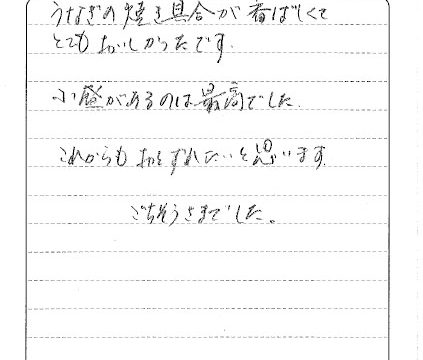 うなぎの焼き具合が香ばしくて
とてもおいしかったです.
小盛があるのは最高でした.
これからもおとずれたいと思います.
ごちそうさまでした。